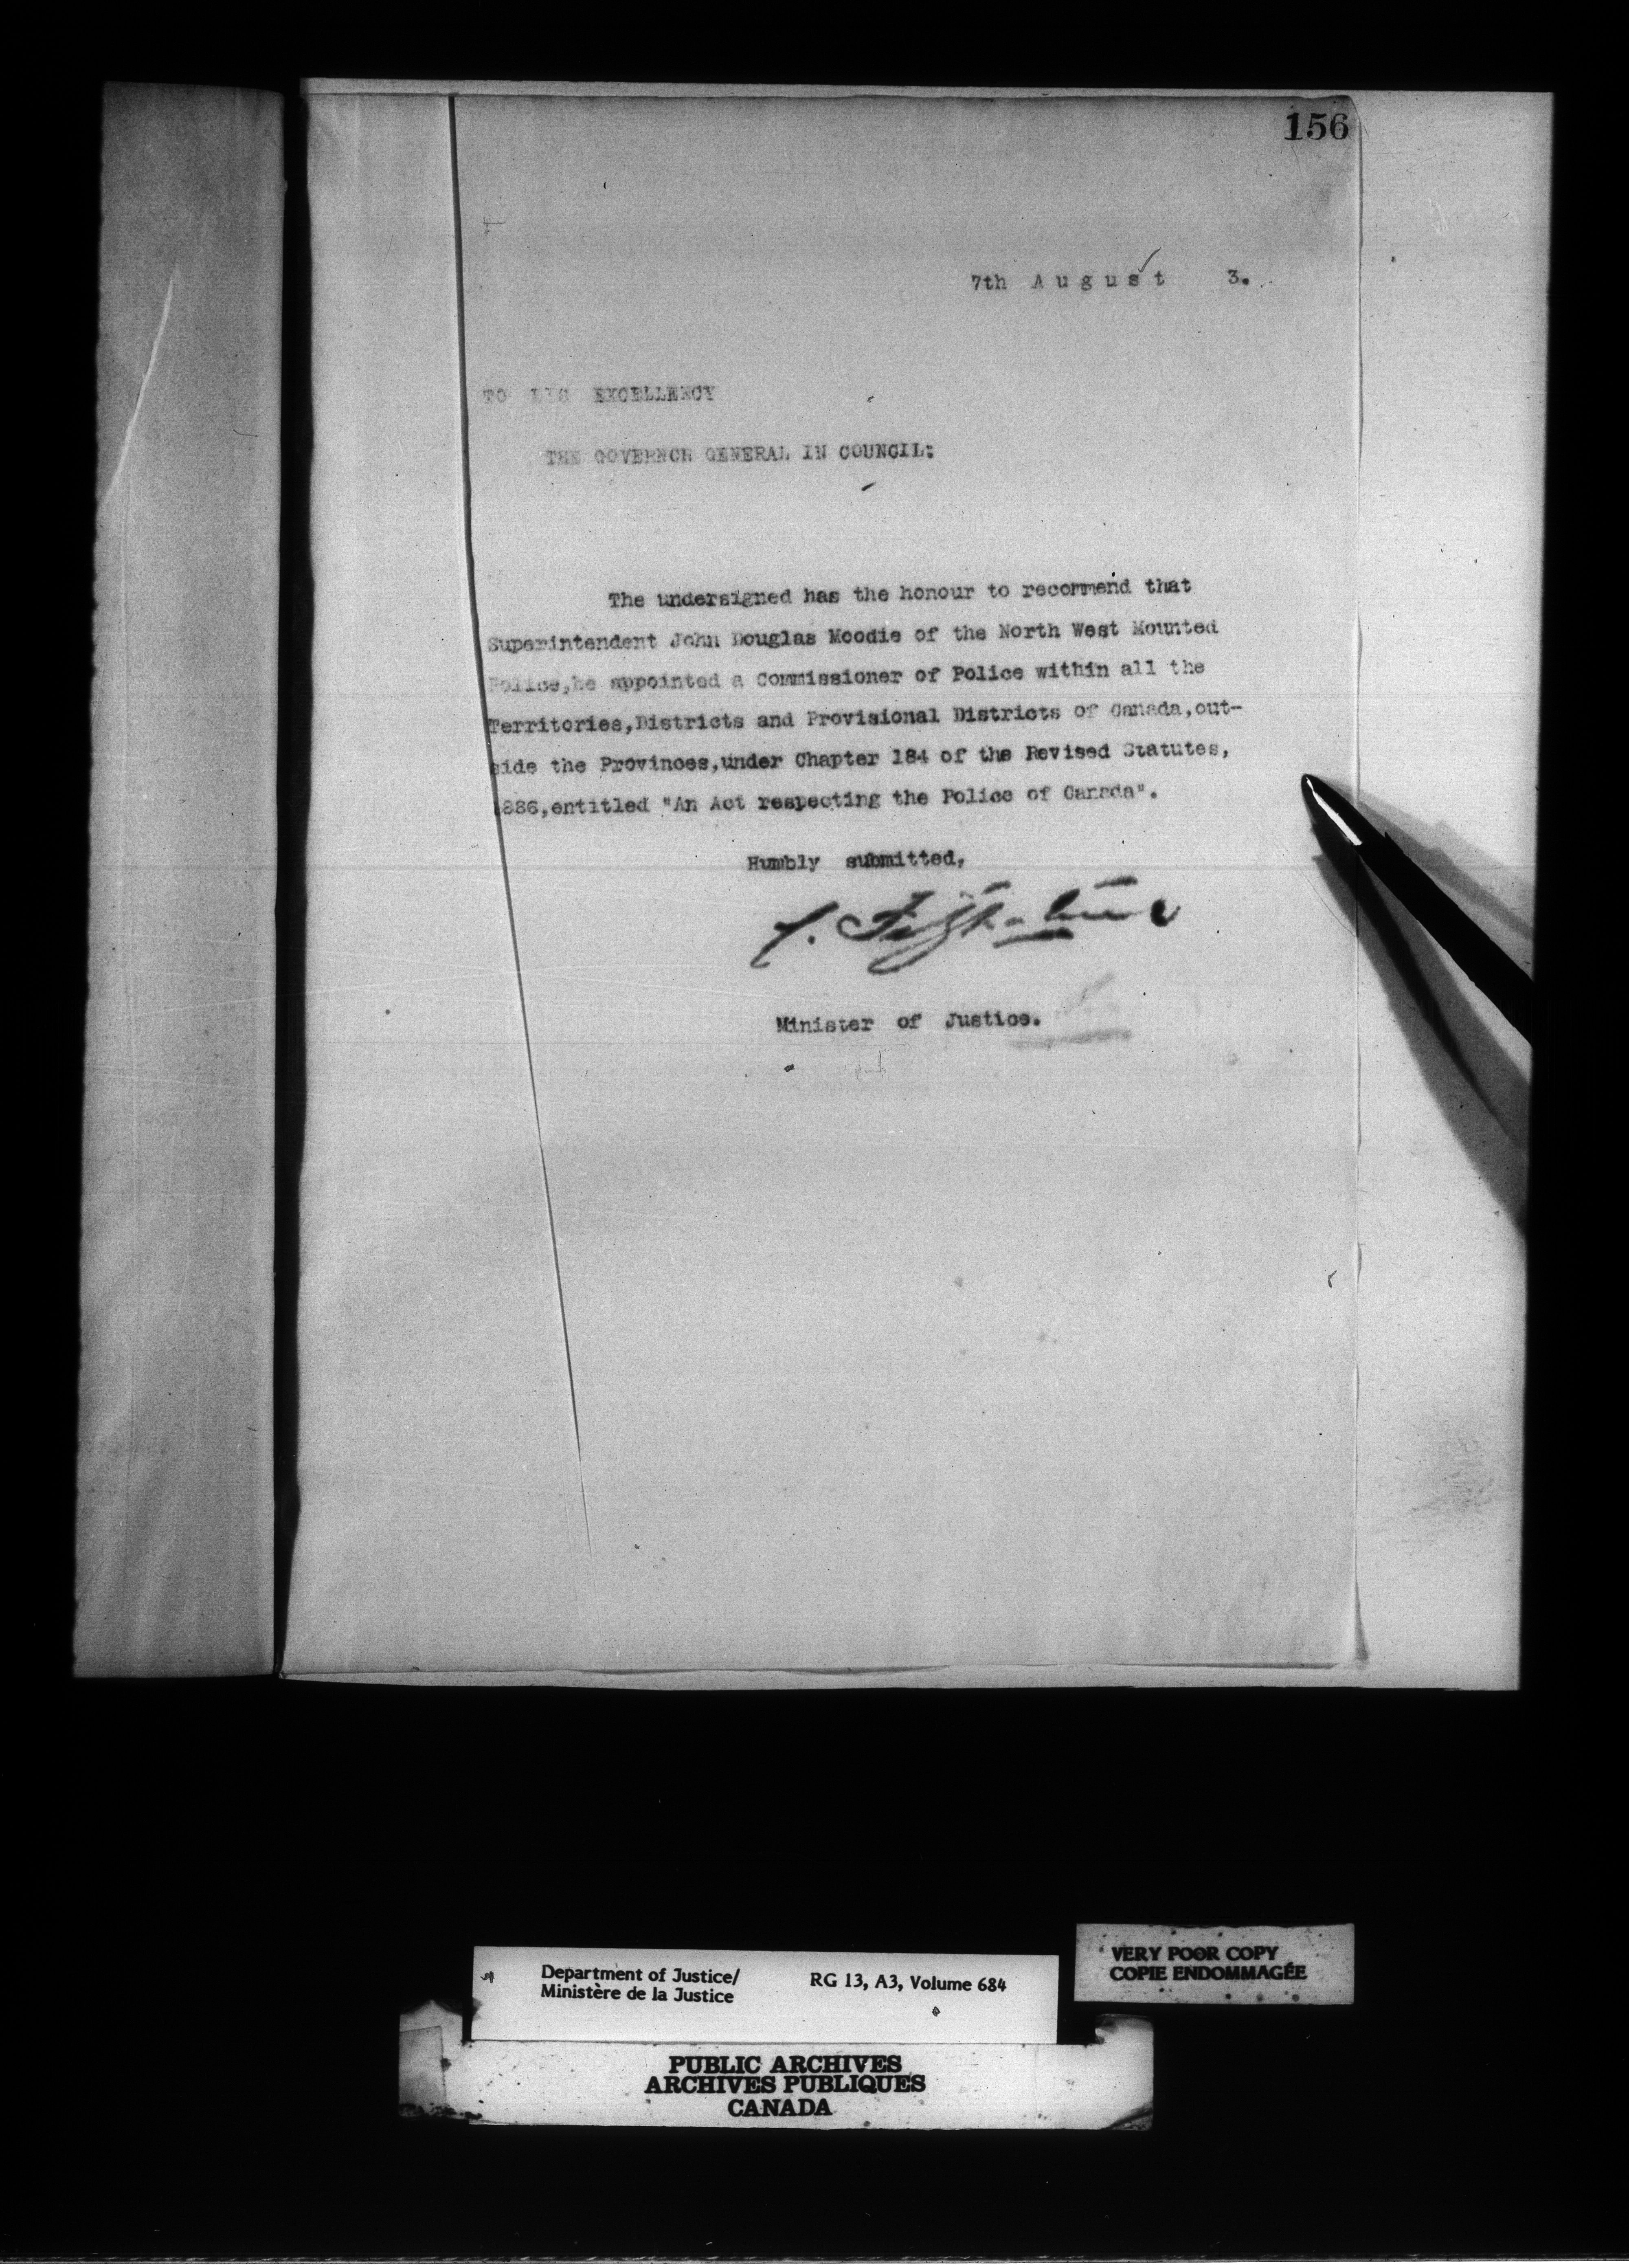 156
7th August 3.
TO HIS EXCELLENCY
THE GOVERNOR GENERAL IN COUNCIL:
The undersigned has the honour to recommend that
Superintendent John Douglas Moodie of the North West Mounted
Police,be appointed a Commissioner of Police within all the
Territories,Districts and Provisional Districts of Canada,out-
side the Provinces,under Chapter 184 of the Revised Statutes,
1886,entitled "An Act respecting the Police of Canada".
Humbly submitted,
C. Fitzpatrick
Minister of Justice.
Department of Justice/
Ministère de la Justice
RG 13, A3, Volume 684
VERY POOR COPY
COPIE ENDOMMAGÉE
PUBLIC ARCHIVES
ARCHIVES PUBLIQUES
CANADA